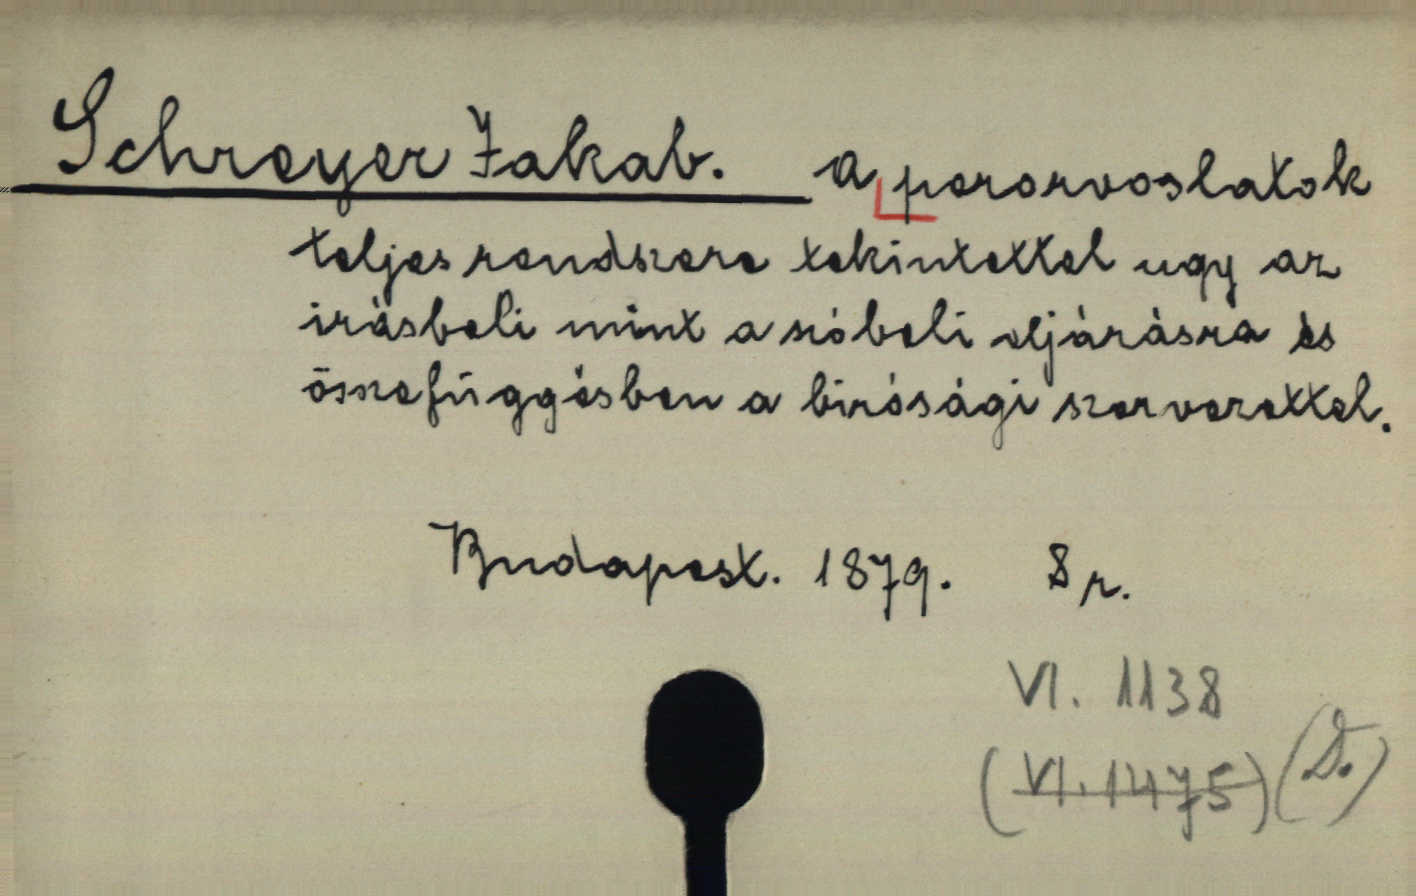 Schreyer Jakab. A perorvoslatok
teljes rendszere tekintettel ugy az
irásbeli mint a szóbeli eljárásra és
összefüggésben a birósági szervezettel.
Budapest. 1879. 8 r.
VI. 1138
(VI. 1475) (D.)